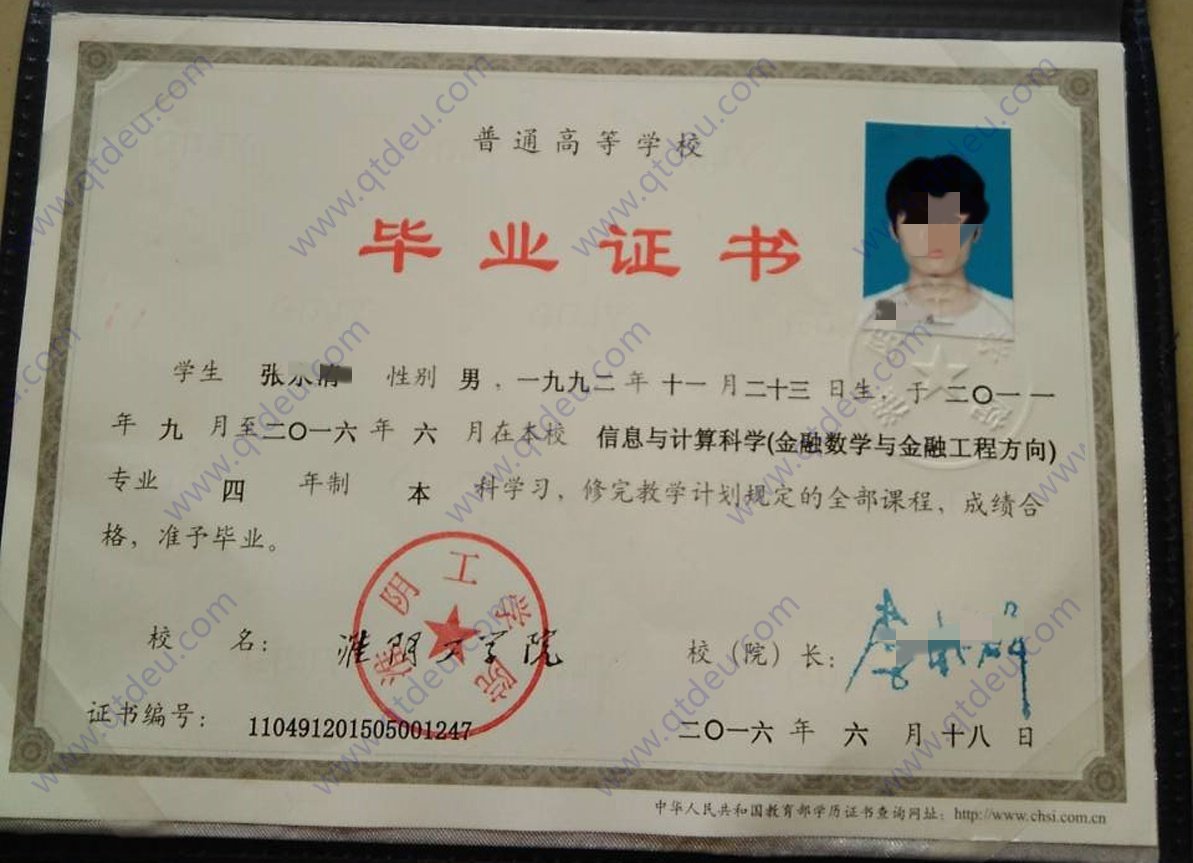 普通高等学校
毕业证书
学生 张 性别 男，一九九二年十一月二十三日生，于二〇一一
年九月至二〇一六年六月在本校 信息与计算科学(金融数学与金融工程方向)
专业 四 年制 本 科学习，修完教学计划规定的全部课程，成绩合
格，准予毕业。
淮阴工学院
校 名：淮阴工学院
校（院）长：
证书编号：110491201505001247
二〇一六年六月十八日
中华人民共和国教育部学历证书查询网址：http://www.chsi.com.cn
www.qtdeu.com